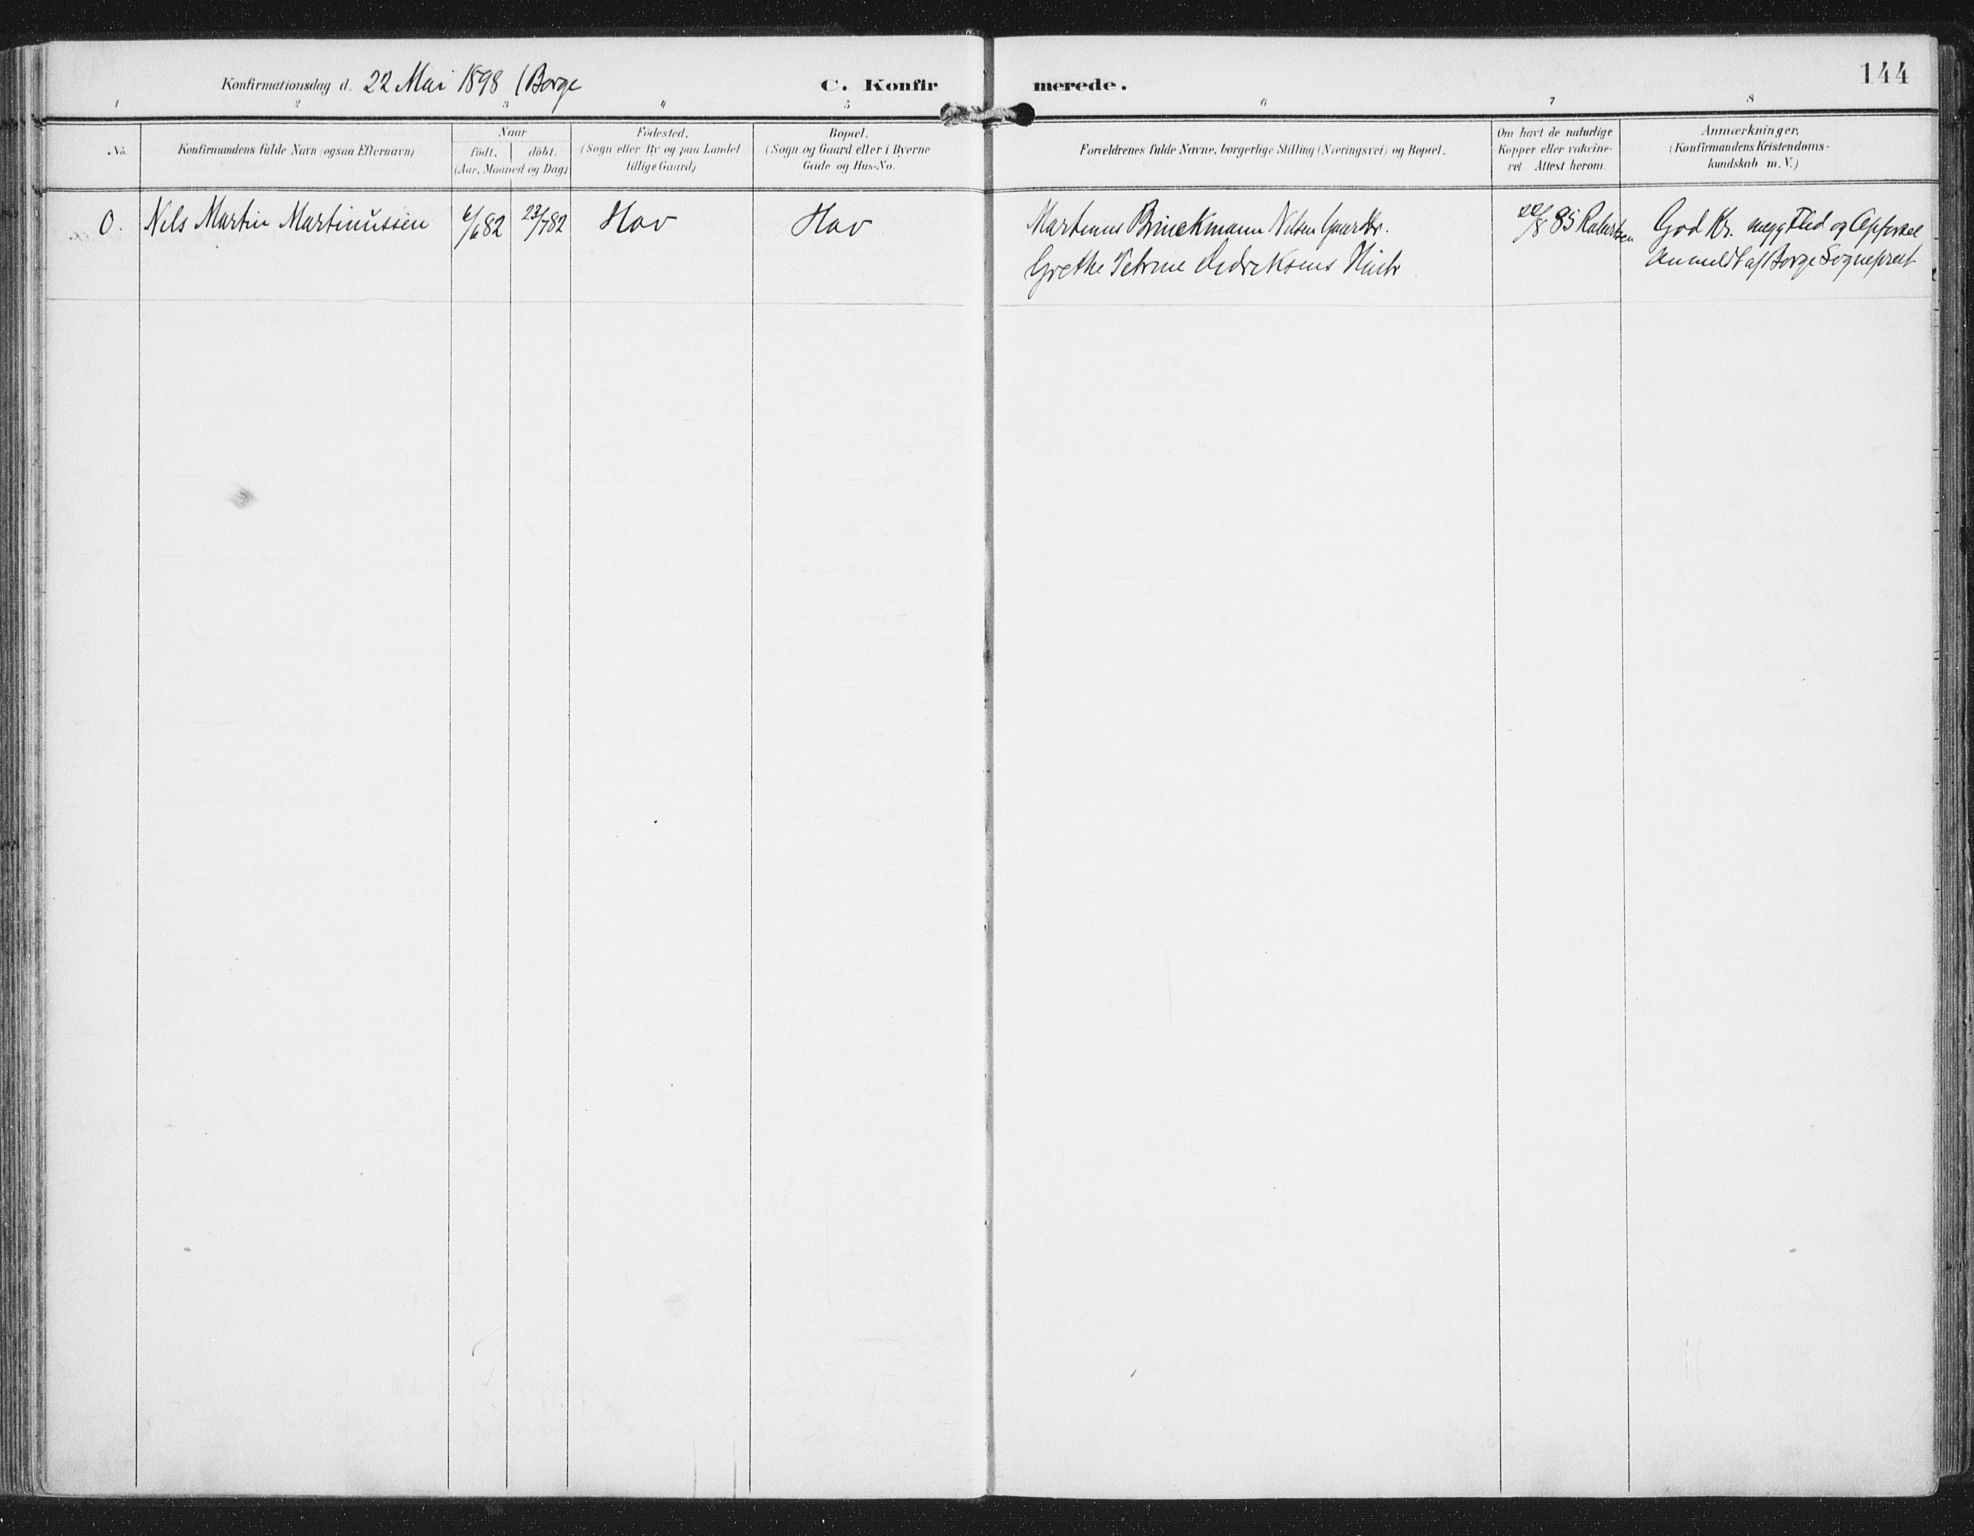 144
Konfirmationsdag d. 22 Mai 1898 (Borge
C. Konfirmerede.
1 2 3 4 5 6 7 8
No.
Konfirmandens fulde Navn (ogsaa Efternavn)
Naar
födt. döbt.
(Aar, Maaned og Dag)
Födested.
(Sogn eller By og paa Landet
tillige Gaard)
Bopæl.
(Sogn og Gaard eller i Byerne
Gade og Hus-No.
Forældrenes fulde Navne, borgerlige Stilling (Næringsvei) og Bopæl.
Om havt de naturlige
Kopper eller vakcine-
ret. Attest herom.
Anmærkninger.
(Konfirmandens Kristendoms-
kundskab m. V.)
0. Nels Martin Martinussen 6/6 82 23/7 82 Hov Hov Martinus Brinckmann Nilsen Gaardbr. 22/8 85 God Kr. megg Flid og Opførsel
Grethe Petrine Didriksens Hustr. Anmeldt af Borge Sogneprest